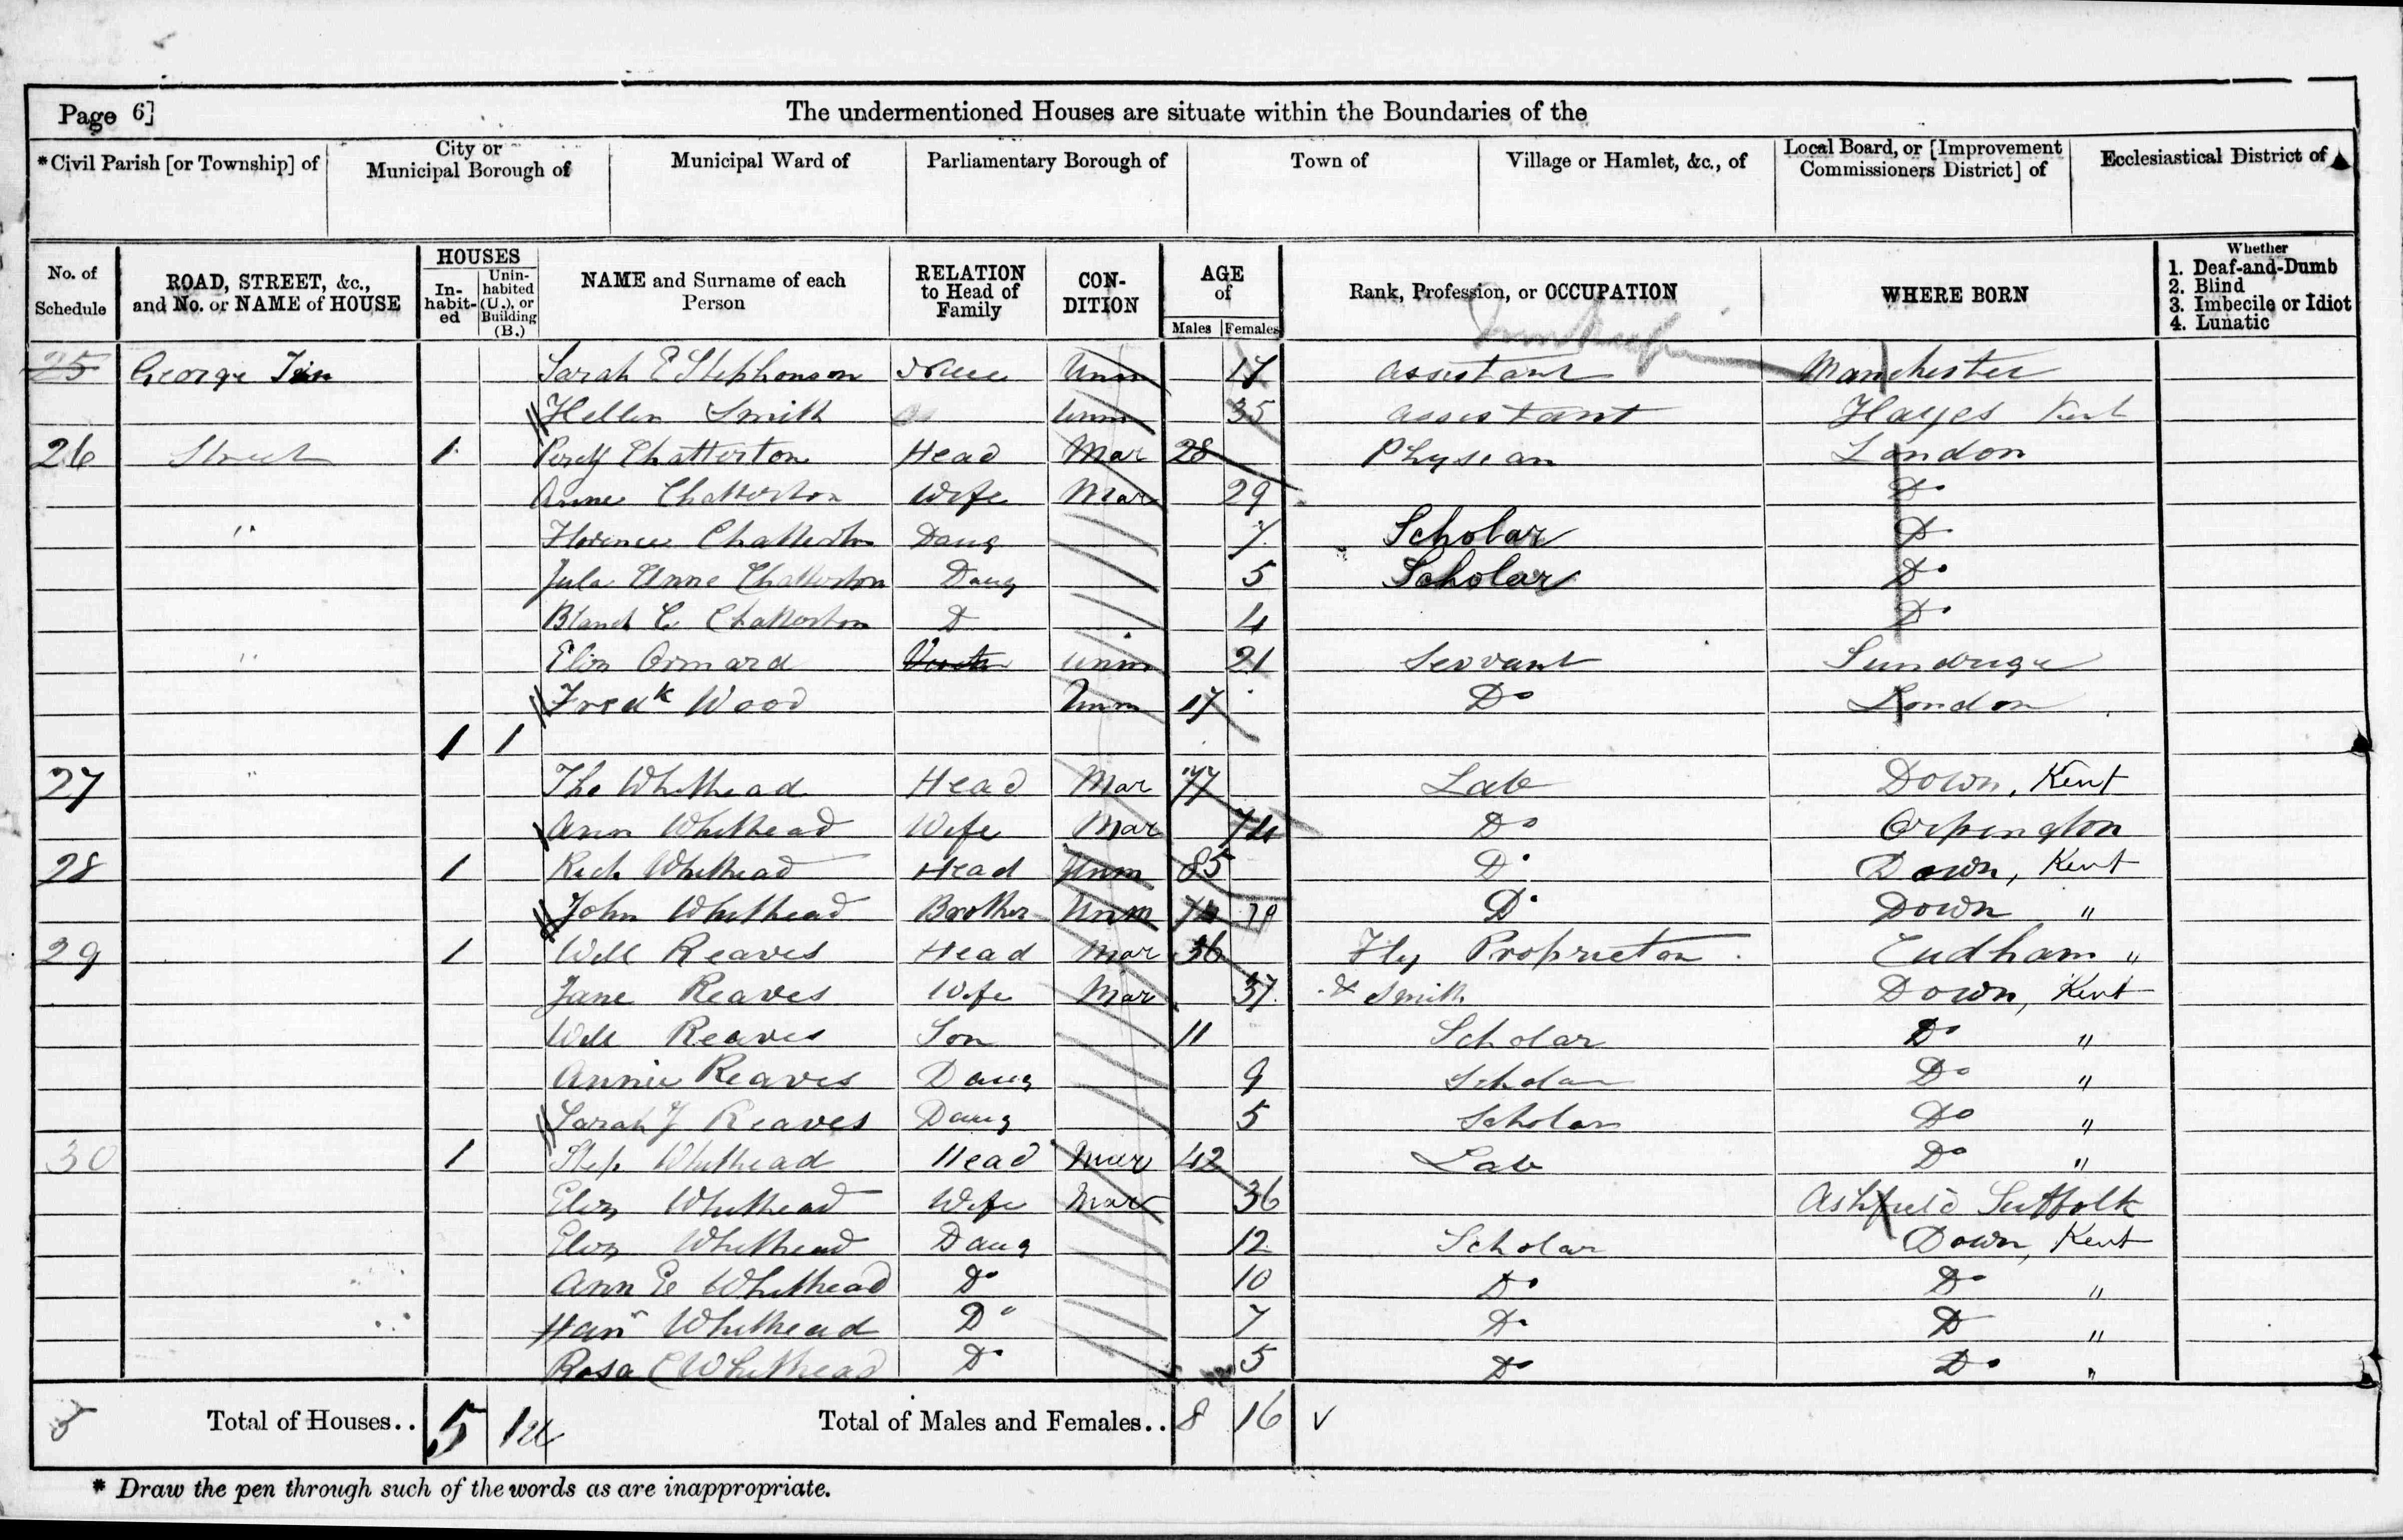 Page 6]
The undermentioned Houses are situate within the Boundaries of the
*Civil Parish [or Township] of
City or Municipal Borough of
Municipal Ward of
Parliamentary Borough of
Town of
Village or Hamlet, &c., of
Local Board, or [Improvement Commissioners District] of
Ecclesiastical District of
No. of Schedule
ROAD, STREET, &c., and No. or NAME of HOUSE
HOUSES
In-habit-ed
Unin-habited (U.), or Building (B.)
NAME and Surname of each Person
RELATION to Head of Family
CON-DITION
AGE of
Males Females
Rank, Profession, or OCCUPATION
WHERE BORN
Whether
1. Deaf-and-Dumb
2. Blind
3. Imbecile or Idiot
4. Lunatic
25 George Inn Sarah E Stephonson Niece Unm 17 Assistant Manchester
Hellen Smith Unm 35 Assistant Hayes Kent
26 Street 1 Percy Chatterton Head Mar 28 Physcan London
Anne Chatterton Wife Mar 29 Do
" Florence Chatterton Daug 7 Scholar Do
Jula Anne Chatterton Daug 5 Scholar Do
Blanch C Chatterton D 4 Do
" Eliz Ormard Unm 21 Servant Sundrige
Fredk Wood Unm 17 Do London
1 1
27 " Tho Whithead Head Mar 77 Lab Down, Kent
Ann Whithead Wife Mar 74 Do Orpington
28 1 Rich Whithead Head Unm 85 Do Down, Kent
John Whithead Brother Unm 79 Do Down "
29 1 Will Reaves Head Mar 36 Fly Proprietor Cudham "
Jane Reaves Wife Mar 37 & Smith Down, Kent
Will Reaves Son 11 Scholar Do "
Annie Reaves Daug 9 Scholar Do "
Sarah J Reaves Daug 5 Scholar Do "
30 1 Step Whithead Head Mar 42 Lab Do "
Eliz Whithead Wife Mar 36 Ashfield Suffolk
Eliz Whithead Daug 12 Scholar Down, Kent
Ann E Whithead Do 10 Do Do "
Han Whithead Do 7 Do Do "
Rosa C Whithead Do 5 Do Do "
5 Total of Houses.. 5 1u Total of Males and Females.. 8 16
* Draw the pen through such of the words as are inappropriate.